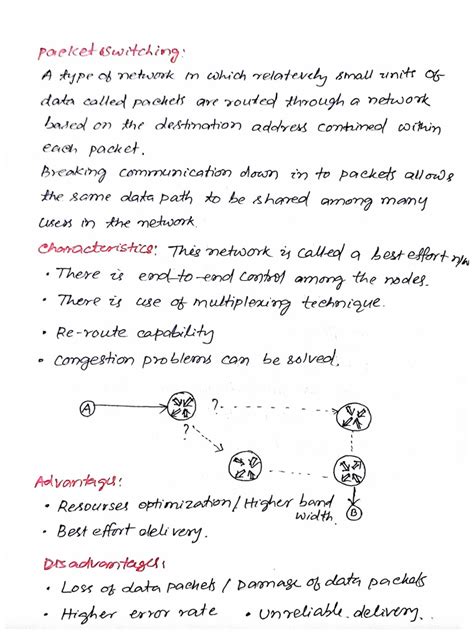 Packet Switching:
A type of network in which relatevely small units of
data called packets are routed through a network
based on the destination address contined within
each packet.
Breaking communication down in to packets allows
the same data path to be shared among many
users in the network.
Characteristics: This network is called a best effort n/w
• There is end-to-end control among the nodes.
• There is use of multiplexing technique.
• Re-route capability
• Congestion problems can be solved.
A ?
?
B
Advantages:
• Resourses optimization / Higher band
width.
• Best effort delivery.
Disadvantages:
• Loss of data packets / Damage of data packets
• Higher error rate • Unreliable delivery.